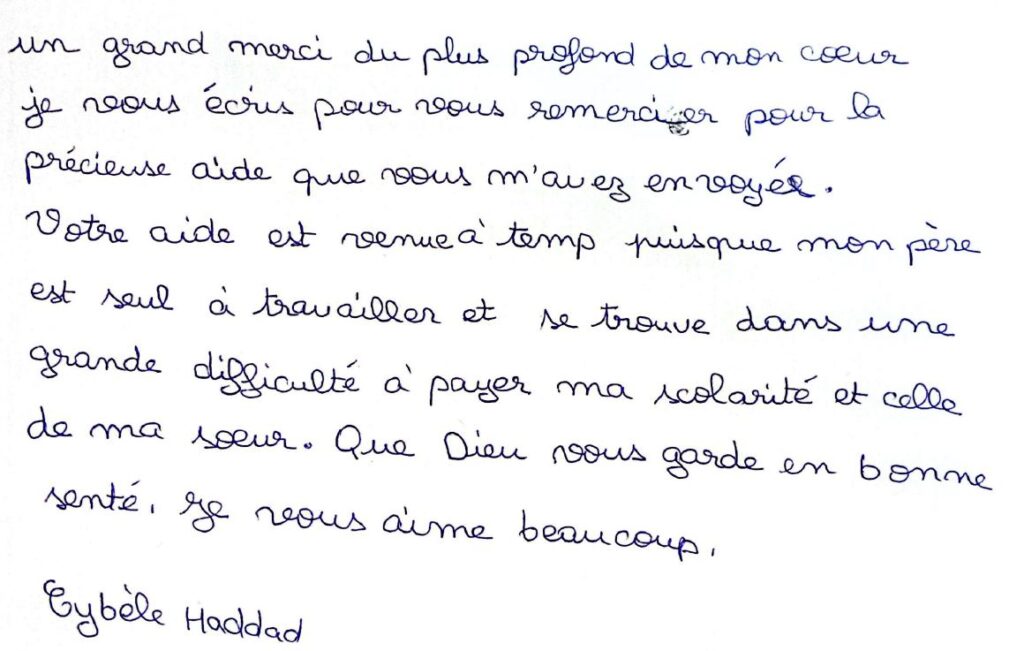 un grand merci du plus profond de mon coeur
je vous écris pour vous remercier pour la
précieuse aide que vous m'avez envoyée.
Votre aide est venue à temp puisque mon père
est seul à travailler et se trouve dans une
grande difficulté à payer ma scolarité et celle
de ma soeur. Que Dieu vous garde en bonne
senté. Je vous aime beaucoup.
Cybèle Haddad